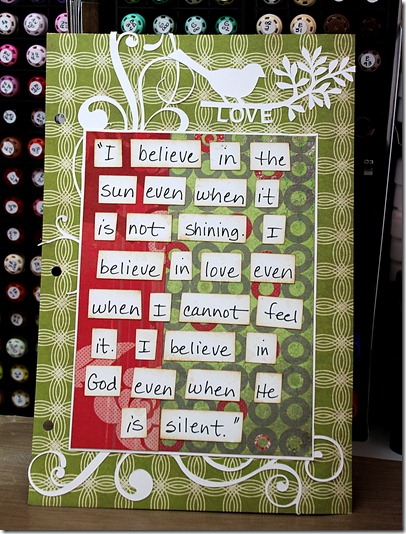 LOVE
"I believe in the
sun even when it
is not shining. I
believe in love even
when I cannot feel
it. I believe in
God even when He
is silent."